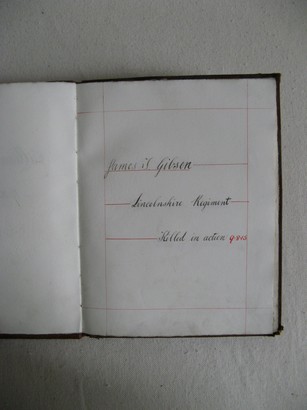 James J Gibson
Lincolnshire Regiment
Killed in action